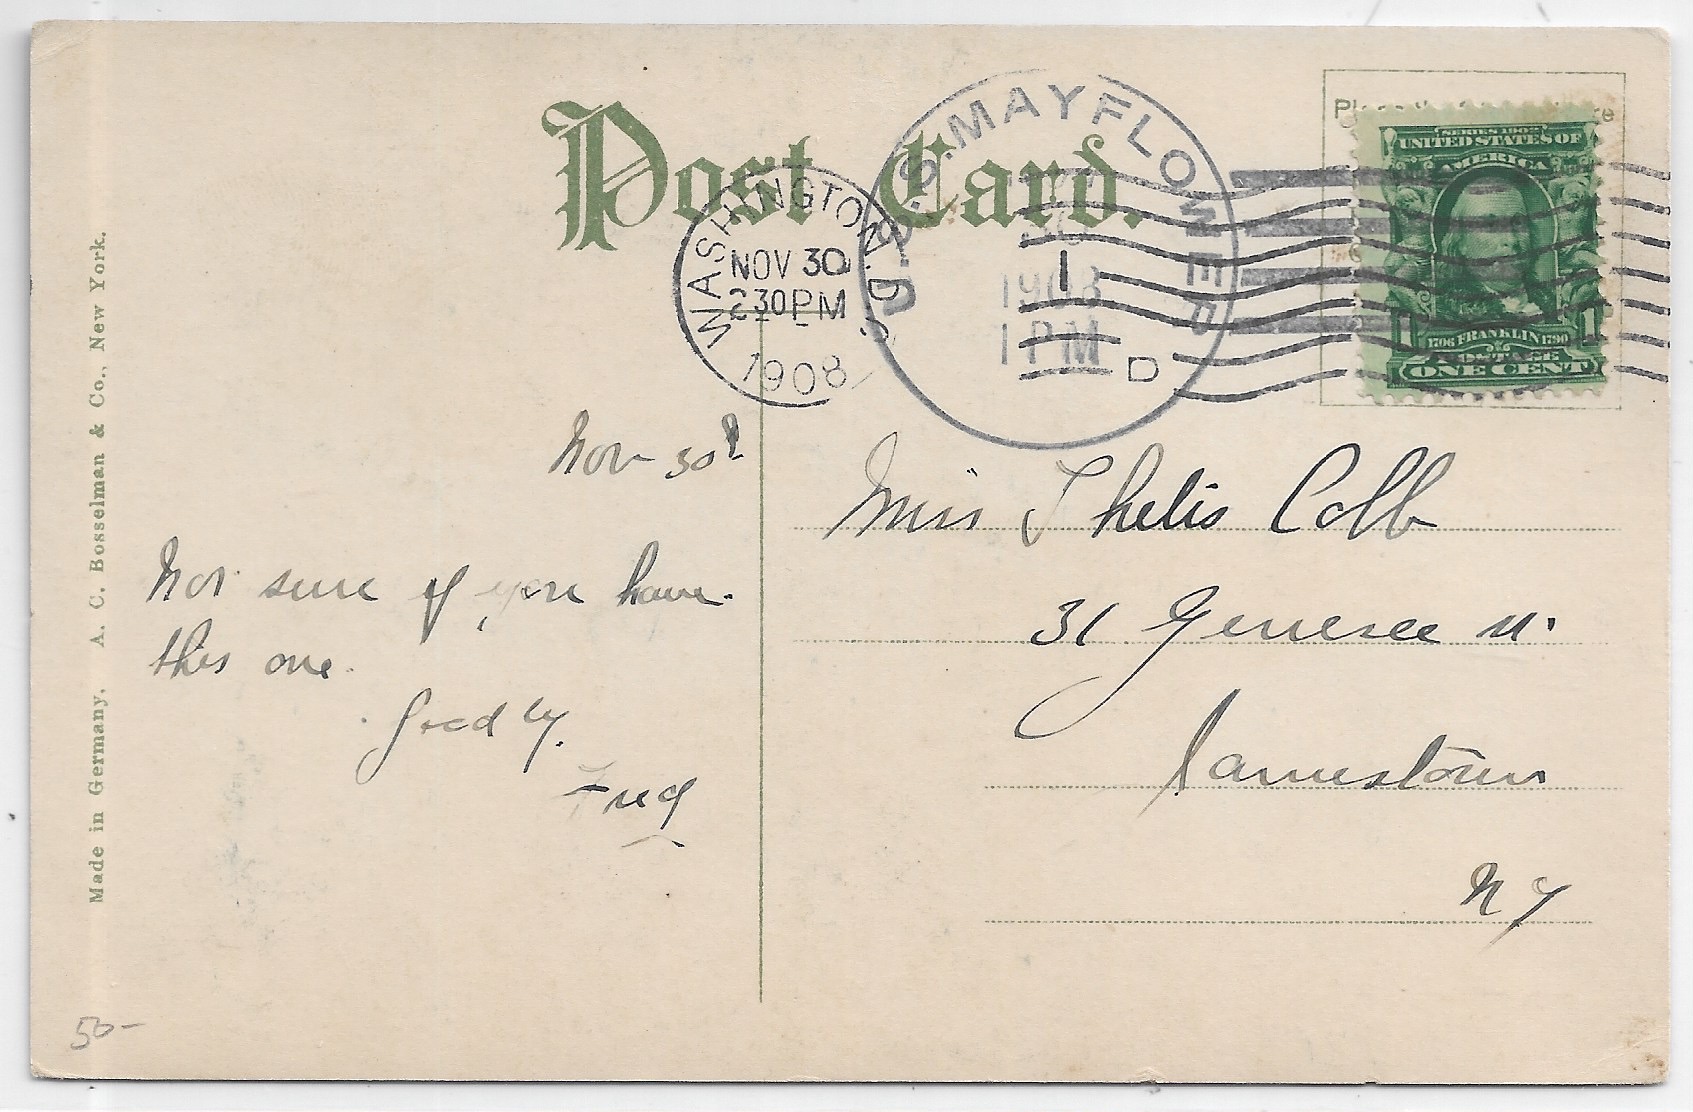 Post Card.
U.S.S. MAYFLOWER
30
1908
1 PM
WASHINGTON, D.C.
NOV 30
2 30 PM
1908
1
D
SERIES 1902
UNITED STATES OF
AMERICA
1706 FRANKLIN 1790
POSTAGE
1 1
ONE CENT
Nov 30th
Not sure if you have
this one.
Good by.
Fred
Miss Thelis Cobb
31 Genesee st.
Jamestown
N Y
Made in Germany. A. C. Bosselman & Co., New York.
50-